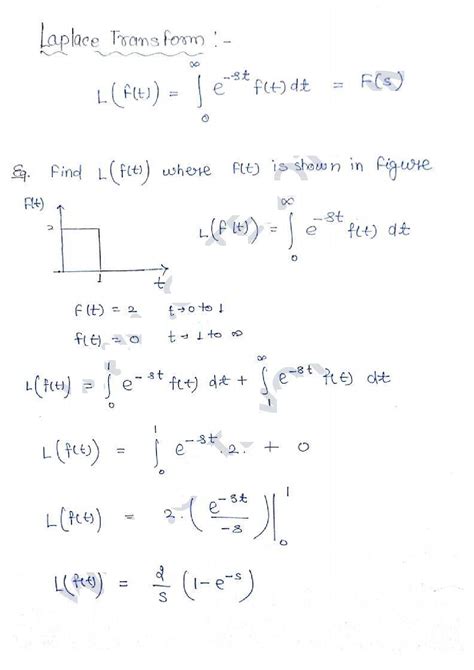 Laplace Transform :-
L(f(t)) = ∫₀^∞ e^{-st} f(t) dt = F(s)
Eg. Find L(f(t)) where f(t) is shown in figure
f(t)
2
1
t
L(f(t)) = ∫₀^∞ e^{-st} f(t) dt
f(t) = 2 t→0 to 1
f(t) = 0 t→1 to ∞
L(f(t)) = ∫₀^1 e^{-st} f(t) dt + ∫₁^∞ e^{-st} f(t) dt
L(f(t)) = ∫₀^1 e^{-st}.2. + 0
L(f(t)) = 2.(e^{-st}/-s)|₀^1
L(f(t)) = 2/s (1-e^{-s})